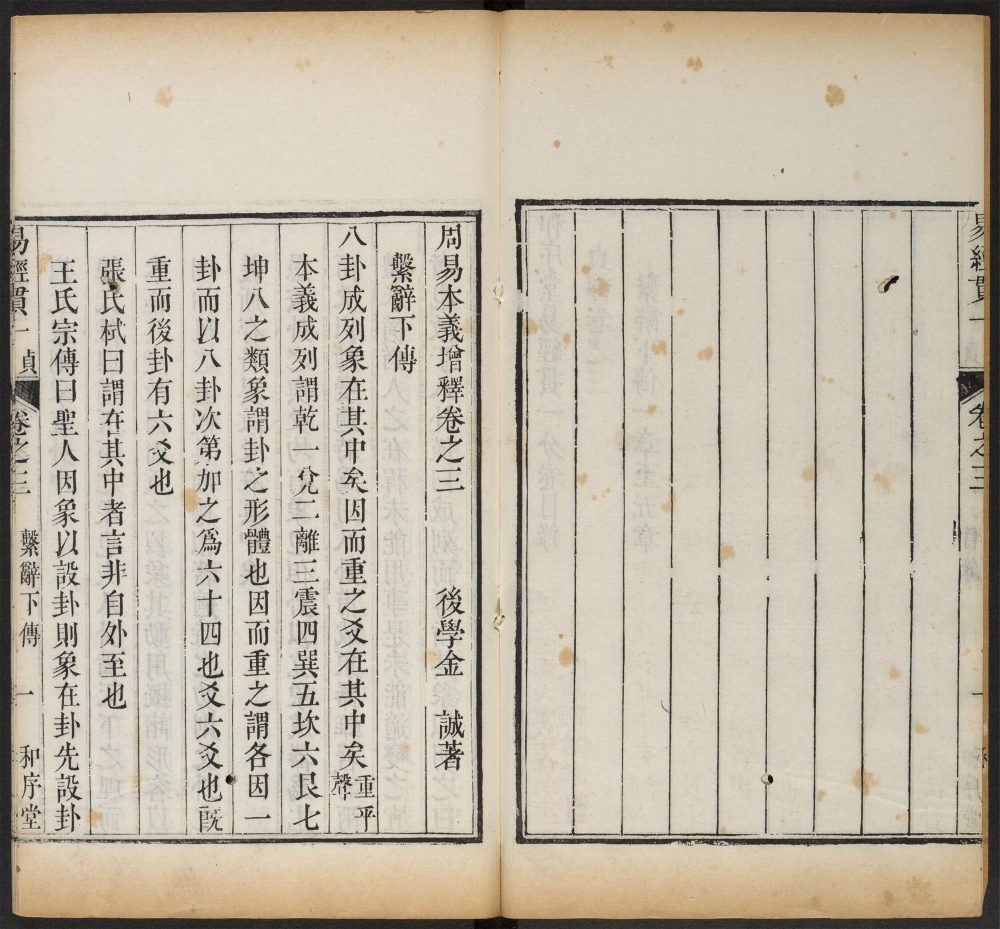 易經貫一
卷之三
一
周易本義增釋卷之三 後學金 誠著
繫辭下傳
八卦成列象在其中矣因而重之爻在其中矣重平聲
本義成列謂乾一兌二離三震四巽五坎六艮七
坤八之類象謂卦之形體也因而重之謂各因一
卦而以八卦次第加之為六十四也爻六爻也既
重而後卦有六爻也
張氏栻曰謂在其中者言非自外至也
王氏宗傳曰聖人因象以設卦則象在卦先設卦
易經貫一 貞 卷之三 繫辭下傳 一 和序堂